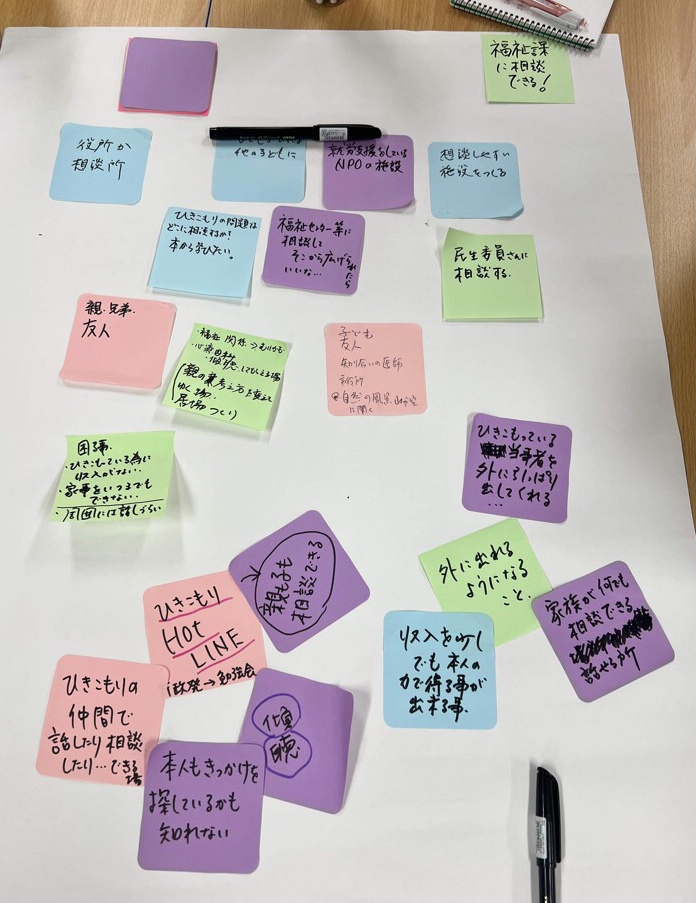 福祉課
に相談
できる!
役所か
相談所
他の子どもに
就労支援をしている
NPOの施設
相談しやすい
施設をつくる
ひきこもりの問題は
どこに相談すればいいか?
本から学びたい。
福祉センター等に
相談して
そこから広げられたら
いいな…
民生委員さんに
相談する。
親.兄弟.
友人
・福祉関係
(親の考え方を変えて
ゆく場.
居場づくり
子ども
友人
知り合いの医師
役所
に聞く
困る事.
・ひきこもっている為に
収入がない.
・家事をいつまでも
できない.
・周囲には話しづらい
ひきこもっている
当事者を
外に引っぱり
出してくれる
…
親も子も
相談できる
外に出れる
ようになる
こと.
家族が何でも
相談できる
話せる所
ひきこもり
Hot
LINE
行政発→勉強会
収入を少し
でも本人の
力で得る事が
出来る事.
ひきこもりの
仲間で
話したり相談
したり…できる
場
傾
聴
本人もきっかけを
探しているかも
知れない